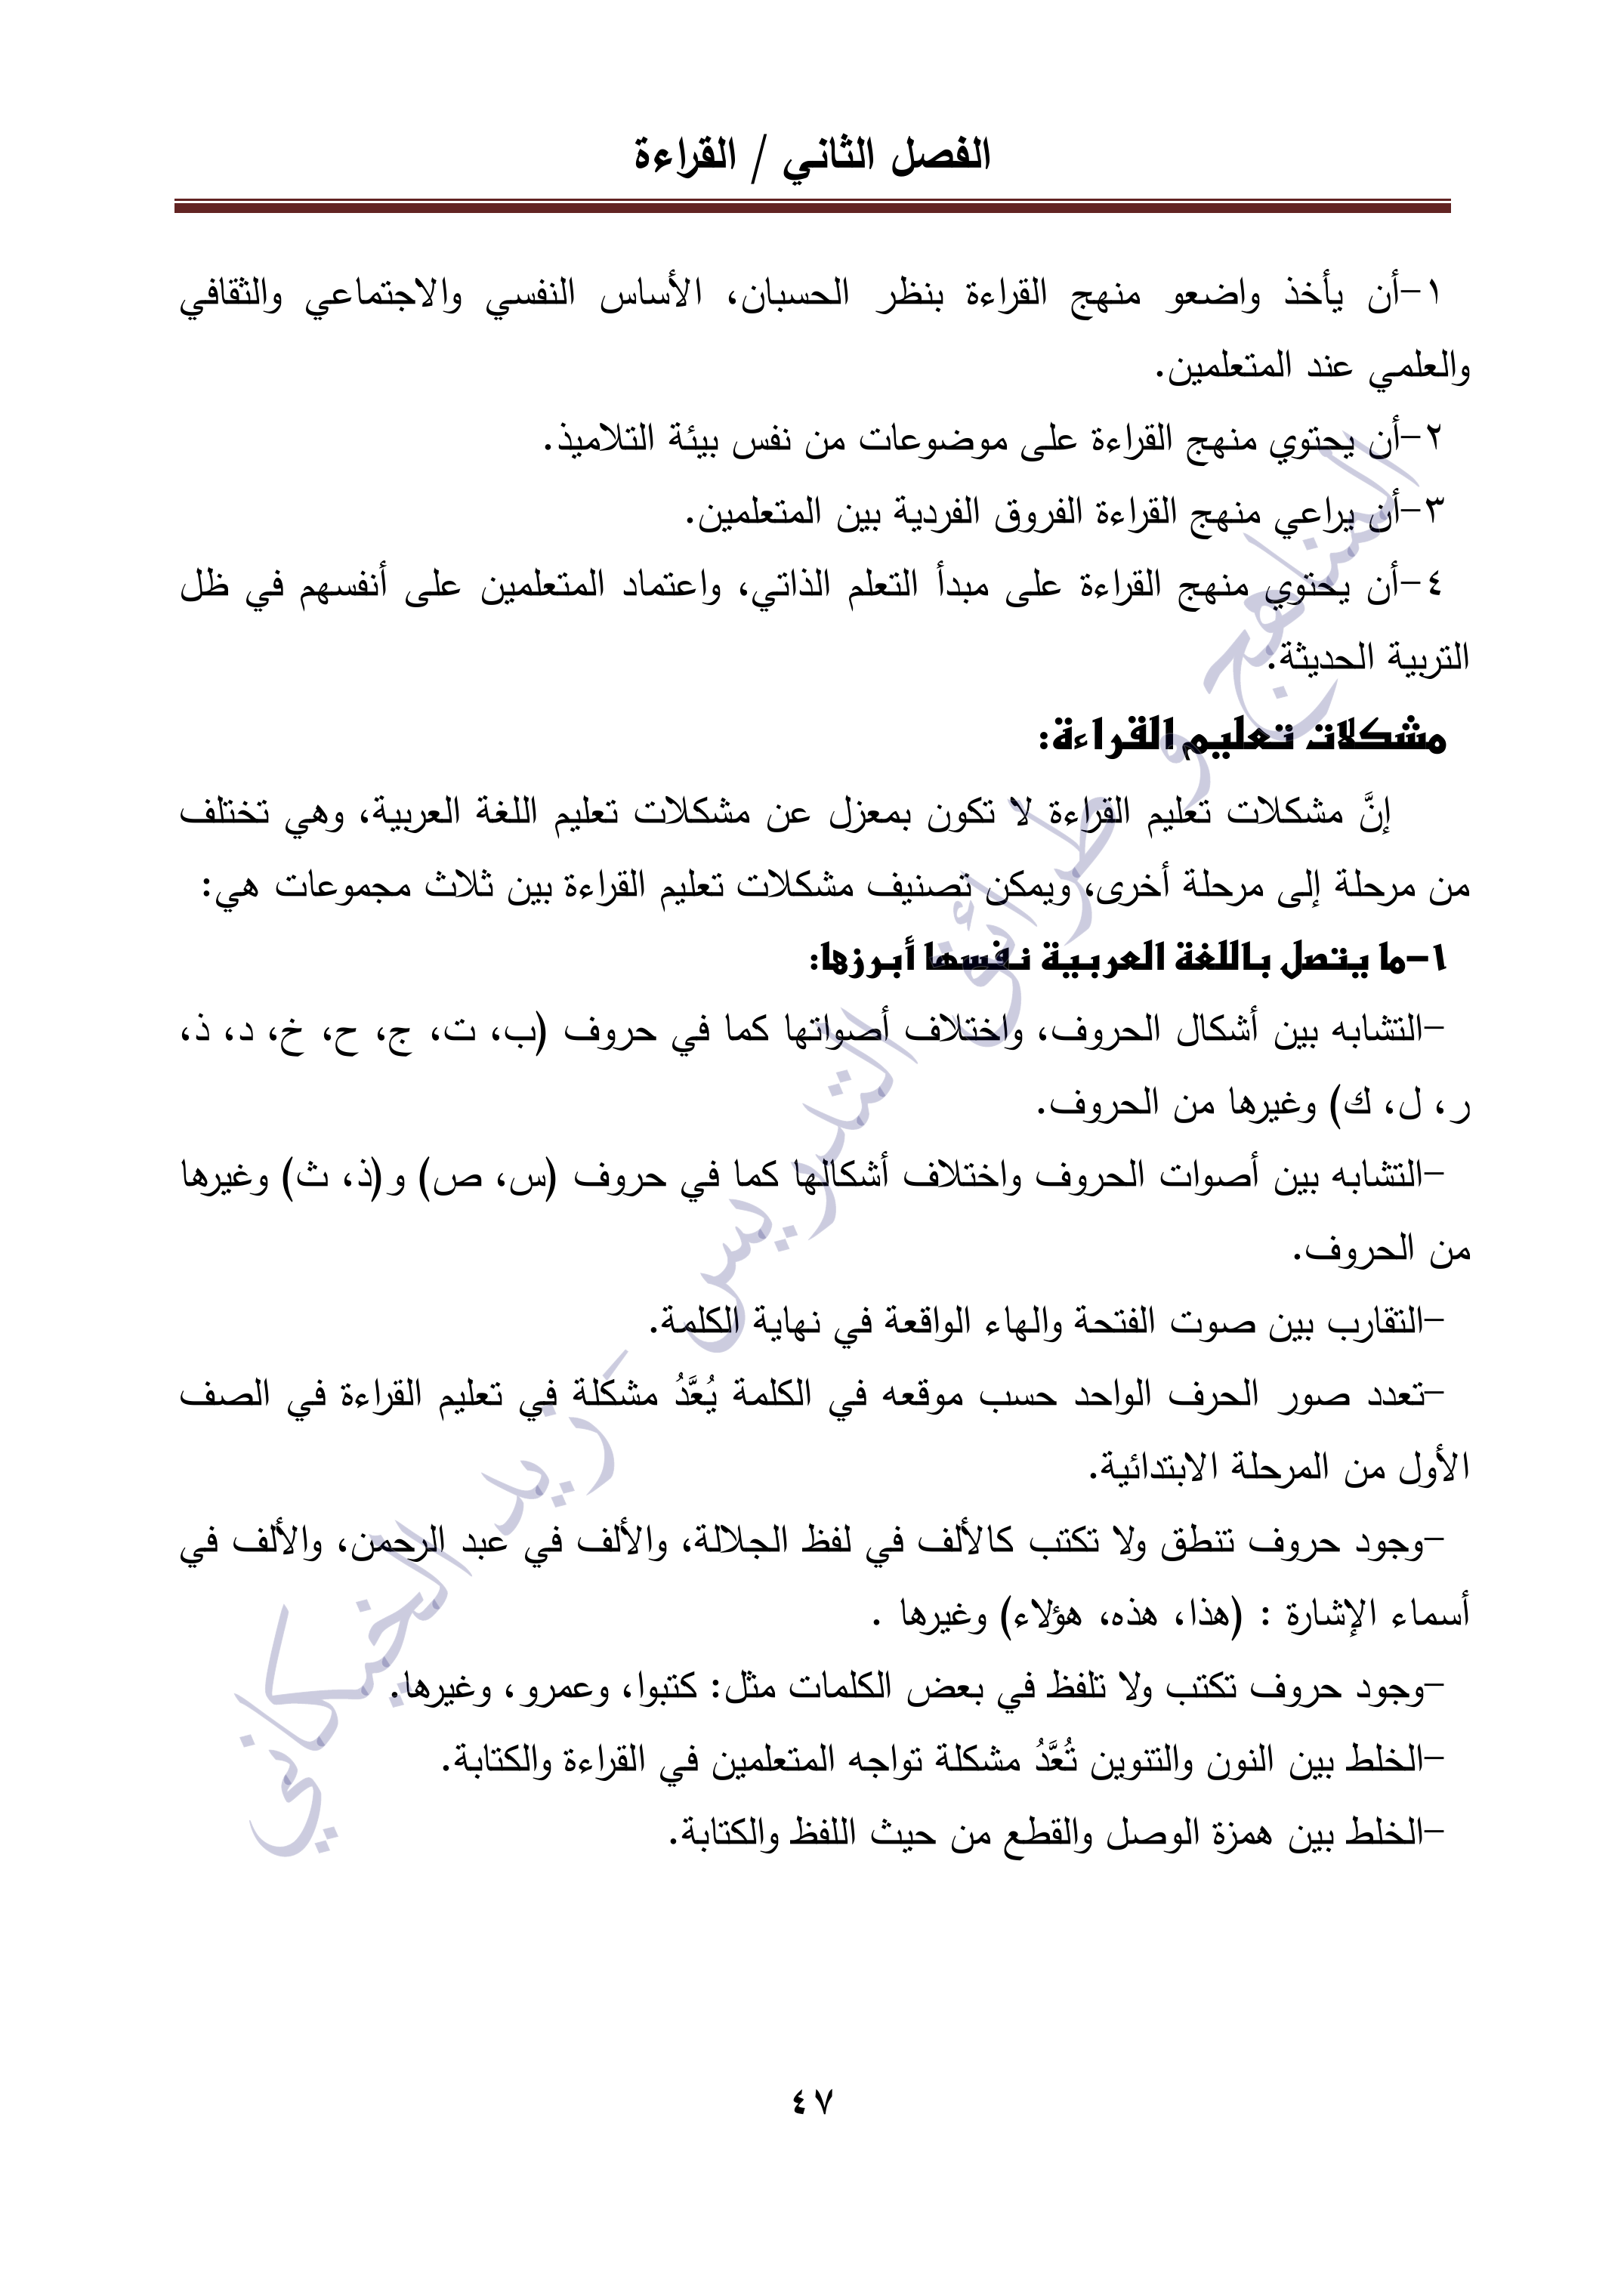 الفصل الثاني / القراءة
١-أن يأخذ واضعو منهج القراءة بنظر الحسبان، الأساس النفسي والاجتماعي والثقافي
والعلمي عند المتعلمين.
٢-أن يحتوي منهج القراءة على موضوعات من نفس بيئة التلاميذ.
٣-أن يراعي منهج القراءة الفروق الفردية بين المتعلمين.
٤-أن يحتوي منهج القراءة على مبدأ التعلم الذاتي، واعتماد المتعلمين على أنفسهم في ظل
التربية الحديثة.
مشكلات تعليم القراءة:
إنَّ مشكلات تعليم القراءة لا تكون بمعزل عن مشكلات تعليم اللغة العربية، وهي تختلف
من مرحلة إلى مرحلة أخرى، ويمكن تصنيف مشكلات تعليم القراءة بين ثلاث مجموعات هي:
١-ما يتصل باللغة العربية نفسها أبرزها:
-التشابه بين أشكال الحروف، واختلاف أصواتها كما في حروف (ب، ت، ج، ح، خ، د، ذ،
ر، ل، ك) وغيرها من الحروف.
-التشابه بين أصوات الحروف واختلاف أشكالها كما في حروف (س، ص) و(ذ، ث) وغيرها
من الحروف.
-التقارب بين صوت الفتحة والهاء الواقعة في نهاية الكلمة.
-تعدد صور الحرف الواحد حسب موقعه في الكلمة يُعَّدُ مشكلة في تعليم القراءة في الصف
الأول من المرحلة الابتدائية.
-وجود حروف تنطق ولا تكتب كالألف في لفظ الجلالة، والألف في عبد الرحمن، والألف في
أسماء الإشارة : (هذا، هذه، هؤلاء) وغيرها .
-وجود حروف تكتب ولا تلفظ في بعض الكلمات مثل: كتبوا، وعمرو، وغيرها.
-الخلط بين النون والتنوين تُعَّدُ مشكلة تواجه المتعلمين في القراءة والكتابة.
-الخلط بين همزة الوصل والقطع من حيث اللفظ والكتابة.
٤٧
المناهج و طرائق التدريس - زيد الخيكاني